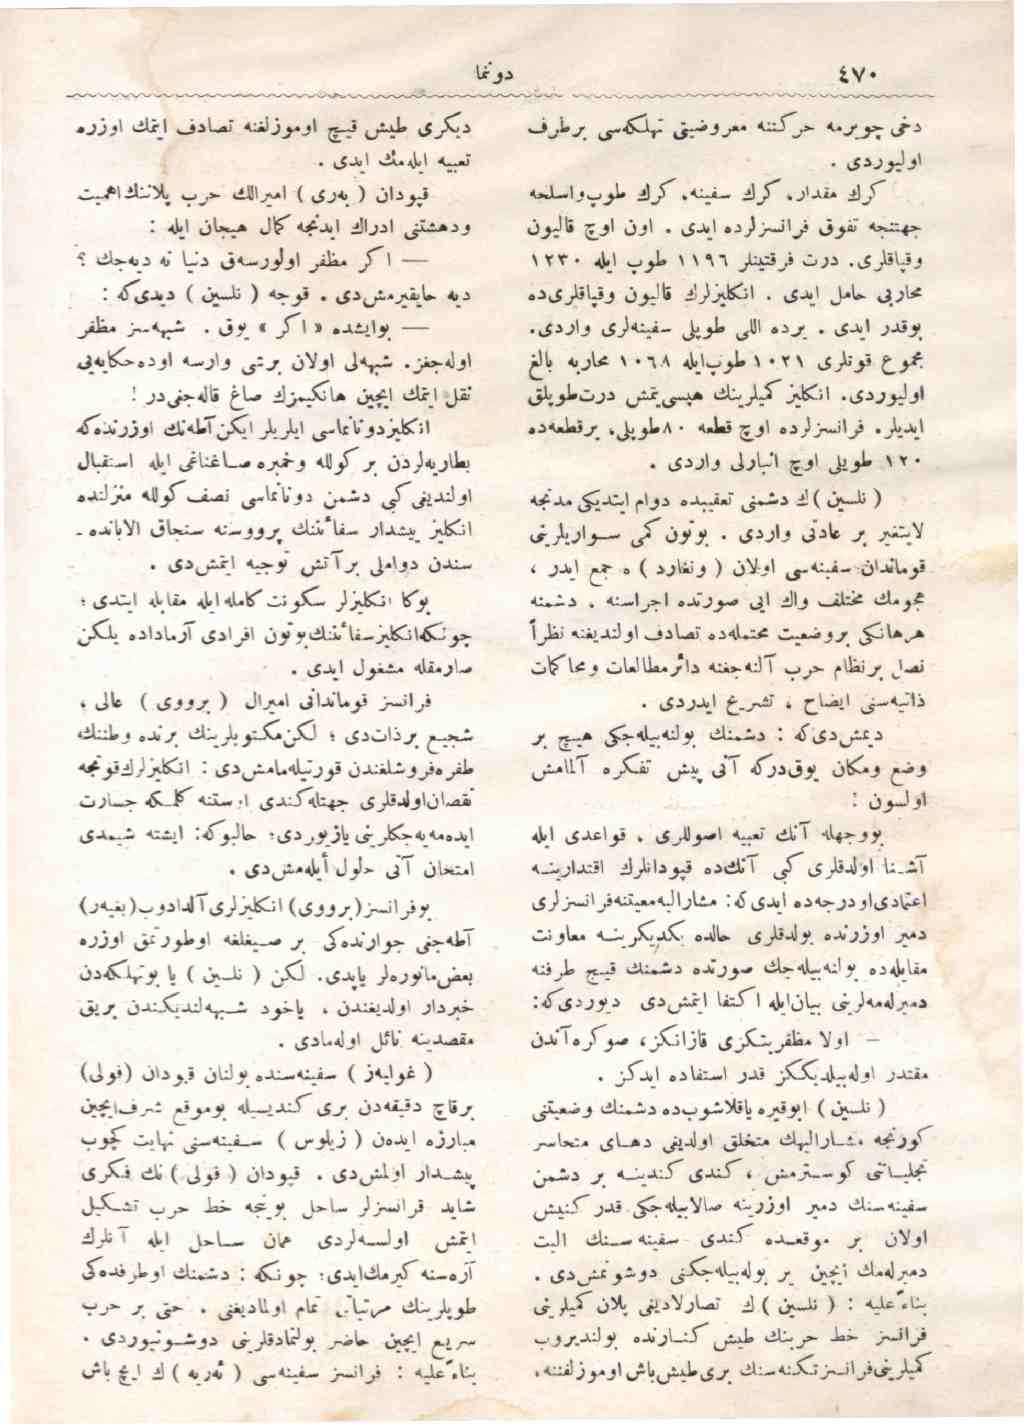 ٤٧٠
دوننما
دخی چویرمه حركتنه معروضیتی تهلكه‌سی برطرف
اولیوردی .
كرك مقدار، كرك سفینه، كرك طوپ‌واسلحه
جهتنجه تفوق فرانسزلرده ایدی . اون اوچ قالیون
وقپاقلری، درت فرقتینلر ١١٩٦ طوپ ایله ١٢٣٠
محاربی حامل ایدی . انكلیزلرك قالیون وقپاقلری‌ده
بوقدر ایدی . برده اللی طوپلی سفینه‌لری واردی.
مجموع قوتلری ١٠٢١ طوپ‌ایله ١٠٦٨ محاربه بالغ
اولیوردی. انكلیز كمیلرینك هپسی‌یتمش درت‌طوپلق
ایدیلر. فرانسزلرده اوچ قطعه ٨٠طوپلی، برقطعه‌ده
١٢٠ طوپلی اوچ انبارلی واردی .
( نلسین )ك دشمنی تعقیبده دوام ایتدیكی مدتجه
لایتغیر بر عادتی واردی . بوتون كمی سواریلرینی
قوماندان سفینه‌سی اولان ( ونغارد ) ه جمع ایدر ،
هجومك مختلف واك ایی صورتده اجراسنه . دشمنه
هرهانكی بروضعیت محتمله‌ده تصادف اولندیغنه نظراً
نصل برنظام حرب آلنه‌جغنه دائرمطالعات ومحاكمات
ذاتیه‌سنی ایضاح ، تشریح ایدردی .
دیمش‌دی‌كه : دشمنك بولنه‌بیله‌جكی هیچ بر
وضع ومكان یوق‌دركه آنی پیش تفكره آلمامش
اولسون !
بووجهله آنك تعبیه اصوللری ، قواعدی ایله
آشنا اولدقلری كبی آنك‌ده قپودانلرك اقتدارینه
اعتمادی‌اودرجه‌ده ایدی‌كه: مشارالیه‌معیتنه‌فرانسزلری
دمیر اوزرنده بولدقلری حالده یكدیكرینه معاونت
مقابله‌ده بولنه‌بیله‌جك صورتده دشمنك قیچ طرفنه
دمیرله‌مه‌لرینی بیان‌ایله اكتفا ایتمش‌دی دیوردی‌كه:
— اولا مظفریتكزی قازانكز، صوكره‌آندن
مقتدر اوله‌بیلدیككز قدر استفاده ایدكز .
( نلسین ) ابوقیره یاقلاشوب‌ده دشمنك وضعیتنی
كورنجه مشارالیهك متخلق اولدیغی دهای متجاسر
تجلیاتی كوسترمش ، كندی كندینه بر دشمن
سفینه‌سنك دمیر اوزرینه صالابیله‌جكی قدر كنیش
اولان بر موقعده كندی سفینه‌سنك البت
دمیرله‌مك ایچین یر بوله‌بیله‌جكنی دوشونمش‌دی .
بناءً‌علیه : ( نلسین )ك تصارلادیغی پلان كمیلرینی
فرانسز خط حربنك طیش كنارنده بولندیروب
كمیلرینی‌فرانسزتكنه‌سنك بری‌طیش‌باش‌اوموزلغنه،
دیكری طیش قیچ اوموزلغنه تصادف ایتمك اوزره
تعبیه ایله‌مك ایدی .
قپودان ( به‌ری ) امیرالك حرب پلاننك‌اهمیت
ودهشتنی ادراك ایدنجه كمال هیجان ایله :
— اكر مظفر اولورسه‌ق دنیا نه دیه‌جك ؟
دیه حایقیرمش‌دی . قوجه ( نلسین ) دیدی‌كه :
— بوایشده « اكر » یوق . شبهه‌سز مظفر
اوله‌جغز. شبهه‌لی اولان برشی وارسه اوده‌حكایه‌یی
نقل ایتمك ایچین هانكیمزك صاغ قاله‌جغی‌در !
انكلیزدونانماسی ایلریلر ایكن‌آطه‌نك اوزرنده‌كه
بطاریه‌لردن بر كولله وخمبره صاغناغی ایله استقبال
اولندیغی كبی دشمن دونانماسی نصف كولله منزلنده
انكلیز پیشدار سفائننك پرووسنه سنجاق الابانده ـ
سندن دواملی برآتش توجیه ایتمش‌دی .
بوكا انكلیزلر سكونت كامله‌ایله مقابله ایتدی ؛
چونكه‌انكلیزسفائننك‌بوتون افرادی آرماداده یلكن
صارمقله مشغول ایدی .
فرانسز قوماندانی امیرال ( برووی ) عالی ،
شجیع برذات‌دی ؛ لكن‌مكتوبلرینك برنده وطننك
طفره‌فروشلغندن قورتیله‌مامش‌دی : انكلیزلرك‌قوتجه
نقصان‌اولدقلری جهتله‌كندی اوستنه كلمكه جسارت
ایده‌مه‌یه‌جكلرینی یازیوردی؛ حالبوكه: ایشته شیمدی
امتحان آنی حلول ایله‌مش‌دی .
بوفرانسز(برووی) انكلیزلری‌آلدادوب(بغیه‌ر)
آطه‌جغی جوارنده‌كی بر صیغلغه اوطورتمق اوزره
بعض‌مانوره‌لر یاپدی. لكن ( نلسین ) یا بوتهلكه‌دن
خبردار اولدیغندن ، یاخود شبهه‌لندیكندن بریق
مقصدینه نائل اوله‌مادی .
( غولیه‌ز ) سفینه‌سنده بولنان قپودان (فولی)
برقاچ دقیقه‌دن بری كندیسیله بوموقع شرف‌ایچین
مبارزه ایده‌ن ( زیلوس ) سفینه‌سنی نهایت كچوب
پیشدار اولمش‌دی . قپودان ( فولی ) نك فكری
شاید فرانسزلر ساحل بوینجه خط حرب تشكیل
ایتمش اولسه‌لردی همان ساحل ایله آنلرك
آره‌سنه كیرمك‌ایدی؛ چونكه : دشمنك اوطرفده‌كی
طوپلرینك مرتباتی تمام اولمادیغنی . حتی بر حرب
سریع ایچین حاضر بولنمادقلرینی دوشونیوردی .
بناءً‌علیه : فرانسز سفینه‌سی ( ئه‌ریه )ك ایچ باش